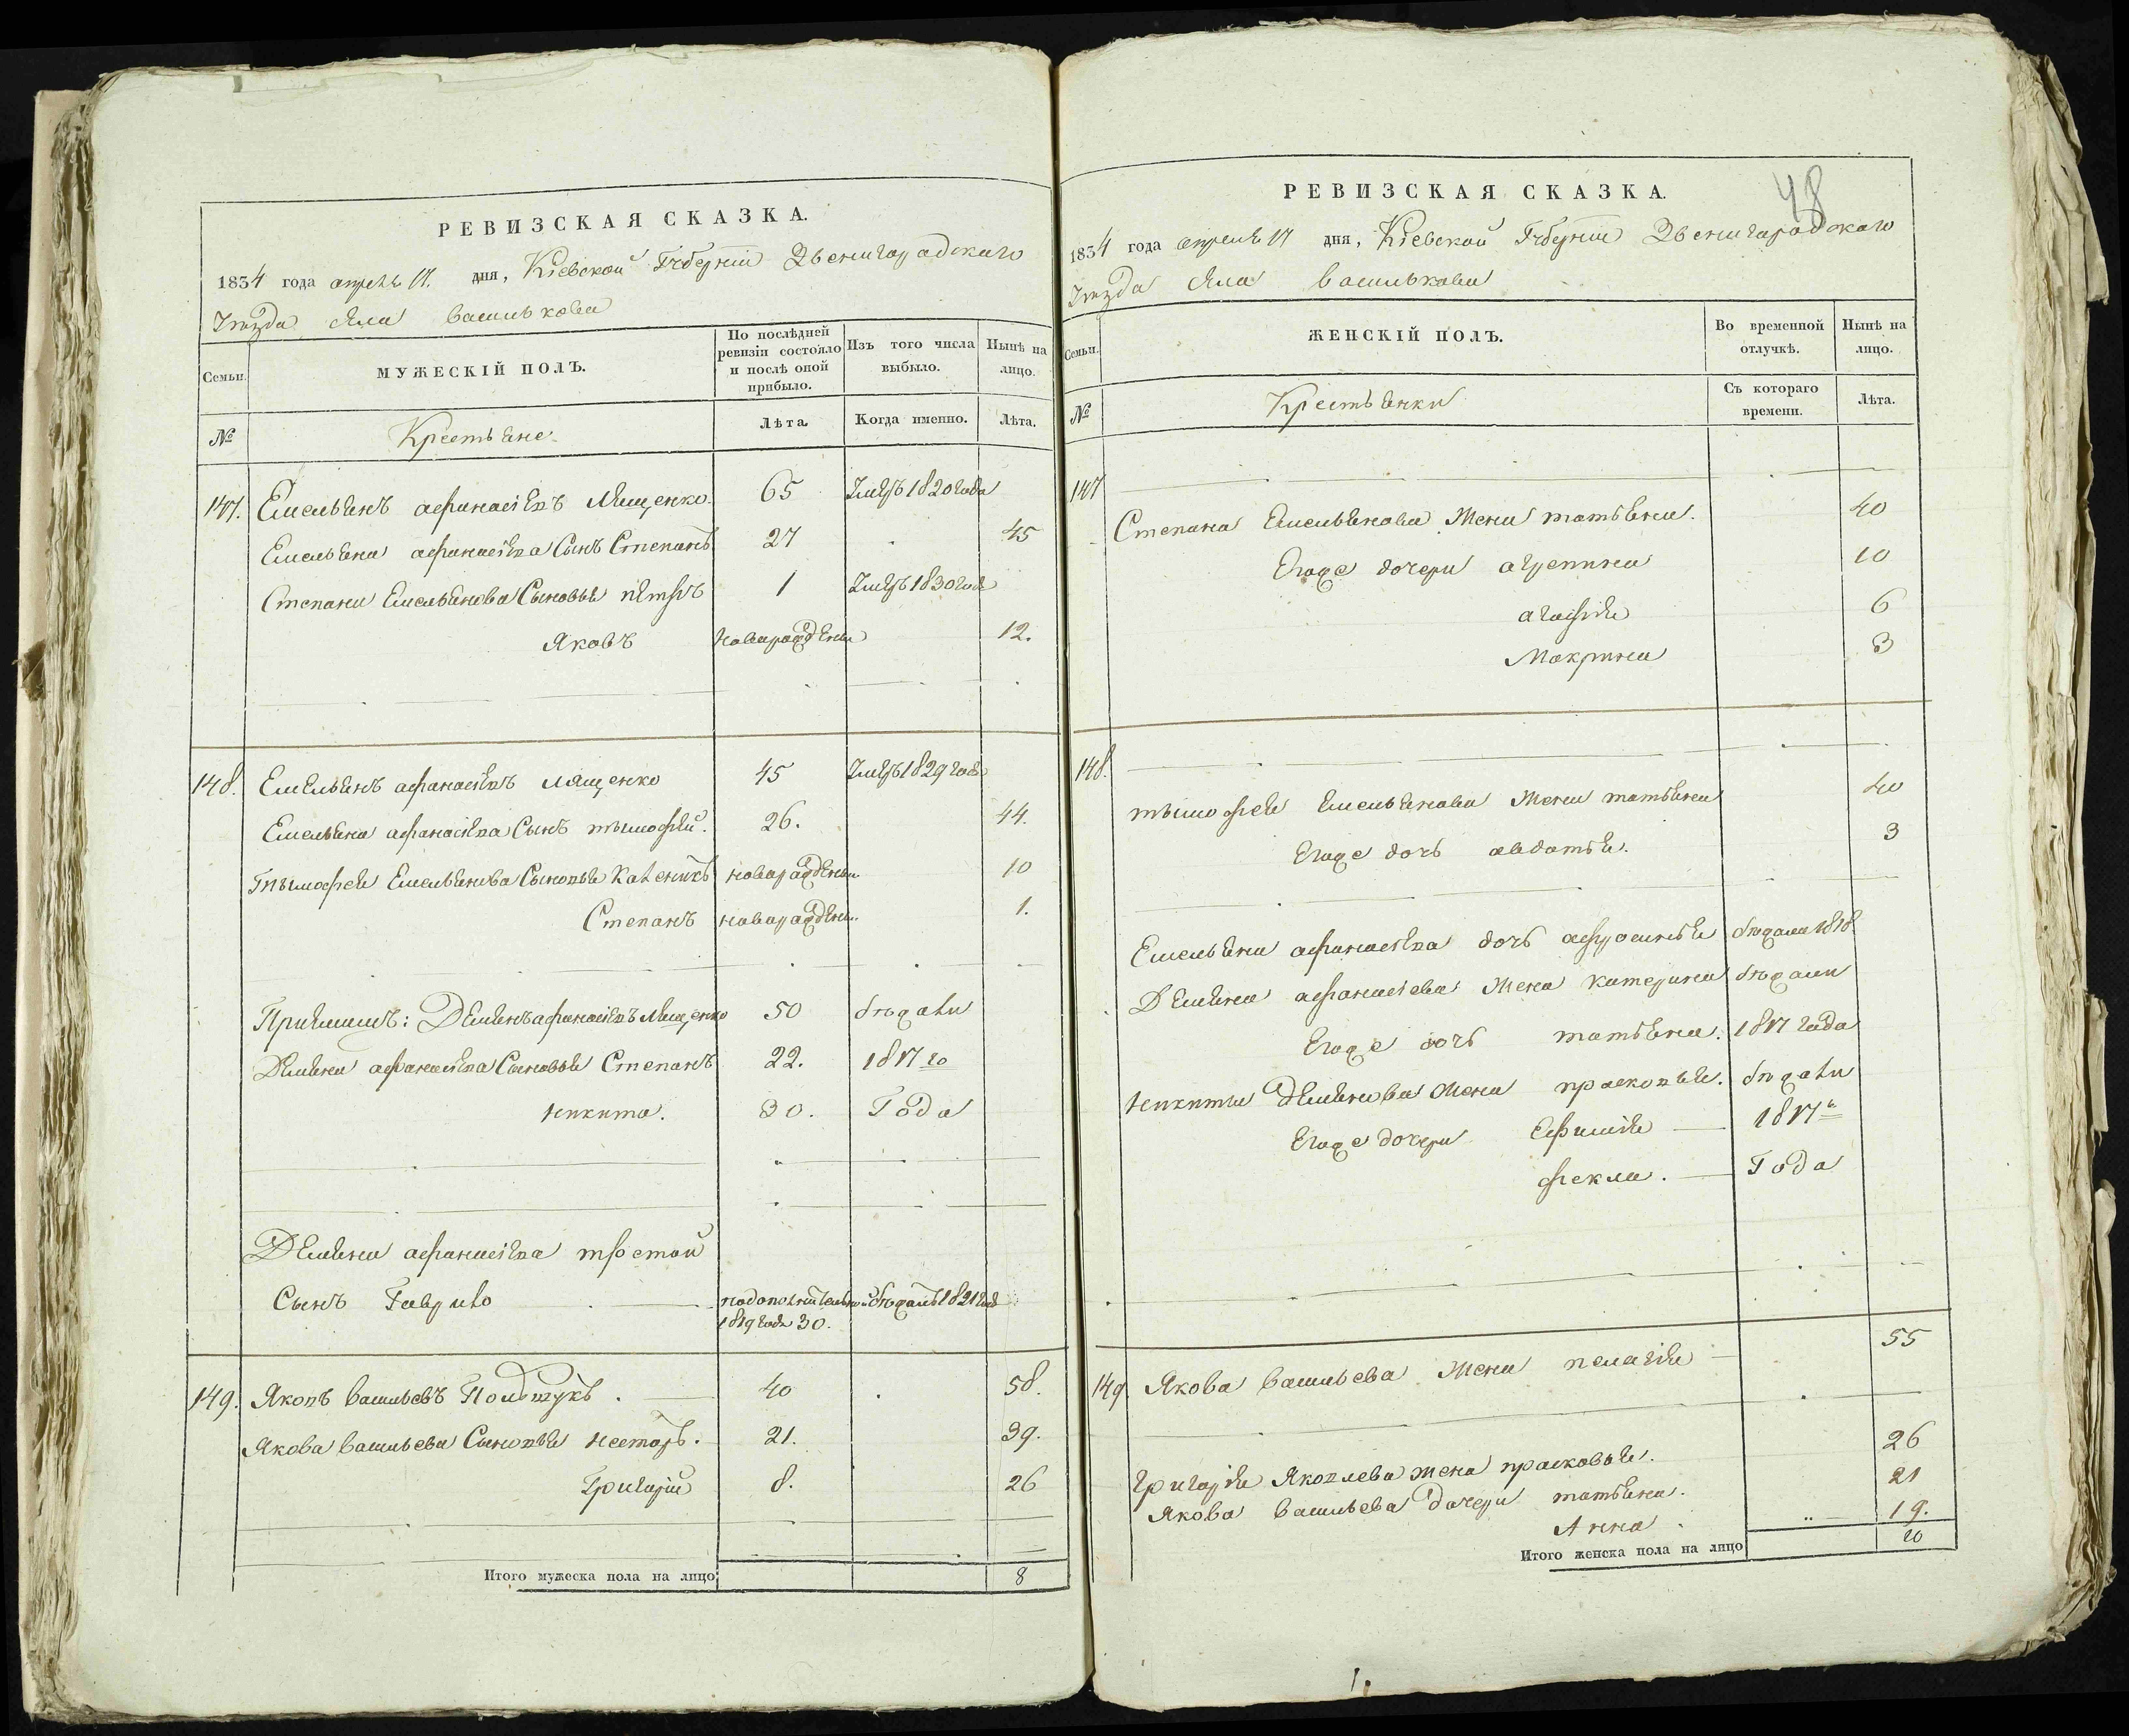 РЕВИЗСКАЯ СКАЗКА.
1834 года апреля 17. дня, Кіевской Губерніи Звенигородскаго
Уѣзда Села Василькова
Семьи. МУЖЕСКІЙ ПОЛЪ. По послѣдней ревизіи состояло и послѣ оной прибыло. Изъ того числа выбыло. Нынѣ на лицо.
№ Крестьяне Лѣта. Когда именно. Лѣта.
147. Емельянъ афанасіевъ Лященко. 65 Умеръ 1820 года
Емельяна афанасіева Сынъ Степанъ 27 45
Степана Емельянова Сыновья петръ 1 Умеръ 1830 года
Яковъ новорожденъ 12.
148. Емельянъ афанасіевъ Лященко 45 Умеръ 1829 года
Емельяна афанасіева Сынъ тымофей. 26. 44.
Тымофея Емельянова Сыновья Каленикъ новорожденъ 10
Степанъ новорожденъ. 1.
Приймашъ: Демянъ афанасіевъ Лященко 50 бѣжали
Демяна афанасіева Сыновья Степанъ 22. 1817го
никита. 30. Года
Демяна афанасіева третой
Сынъ Гаврило подополнительной 1819 года 30. бѣжалъ 1821 года
149. Яковъ Васильевъ Полищукъ. 40 58.
Якова Васильева Сыновья несторъ. 21. 39.
Григорій 8. 26
Итого мужеска пола на лицо 8
РЕВИЗСКАЯ СКАЗКА.
48
1834 года апреля 17 дня, Кіевской Губерніи Звенигородскаго
Уѣзда Села Василькова
Семьи. ЖЕНСКІЙ ПОЛЪ. Во временной отлучкѣ. Нынѣ на лицо.
№ Крестьянки Съ котораго времени. Лѣта.
147
Степана Емельянова Жена татьяна. 40
Егоже дочери агрепина 10
агафія 6
Макрина 3
148.
тымофея Емельянова Жена татьяна 40
Егоже дочь авдотья. 3
Емельяна афанасіева дочь афросинья бѣжала 1818
Демяна афанасіева Жена катерина бѣжали
Егоже дочь татьяна. 1817 года
никиты Демянова Жена прасковья. бѣжали
Егоже дочери Ефимія 1817го
фекла. Года
149. Якова Васильева Жена пелагія 55
Григорія Яковлева жена прасковья. 26
Якова Васильева Дочери татьяна. 21
Анна. 19.
Итого женска пола на лицо 10